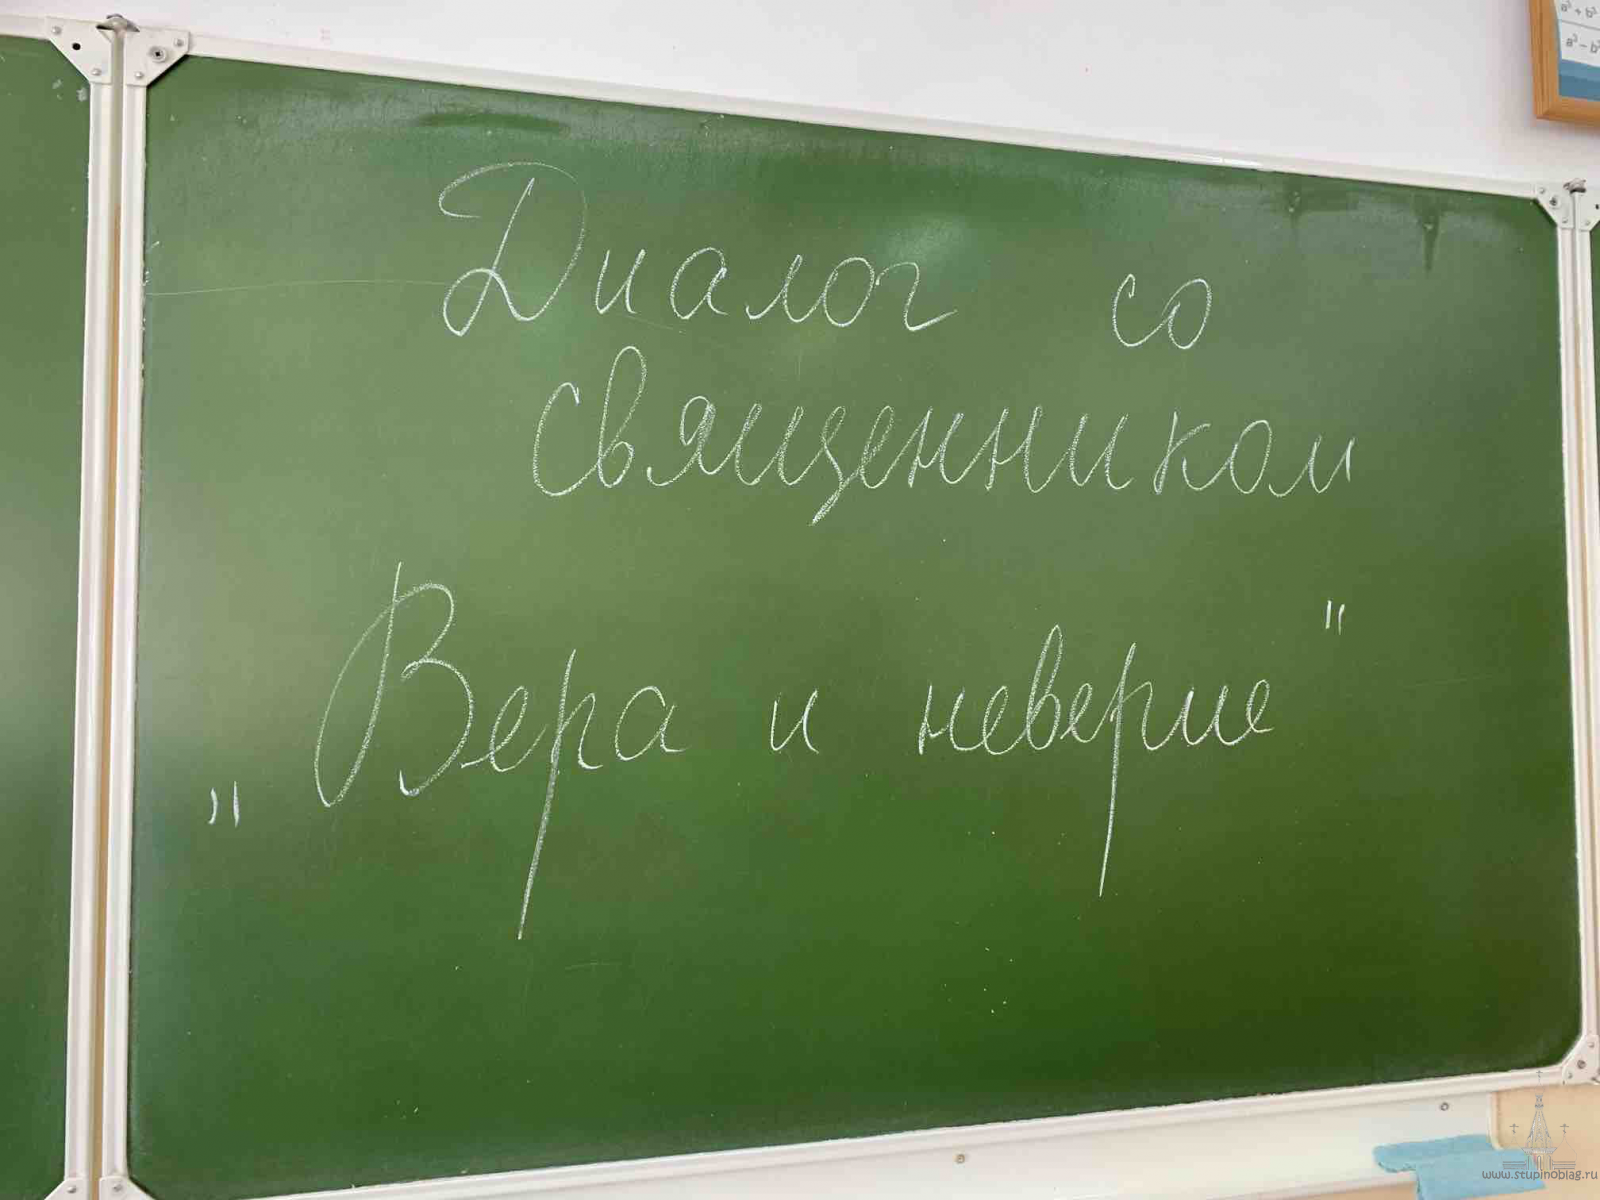 Диалог со
священником
„Вера и неверие"
a³ + b³
a³ - b³
www.stupinoblag.ru